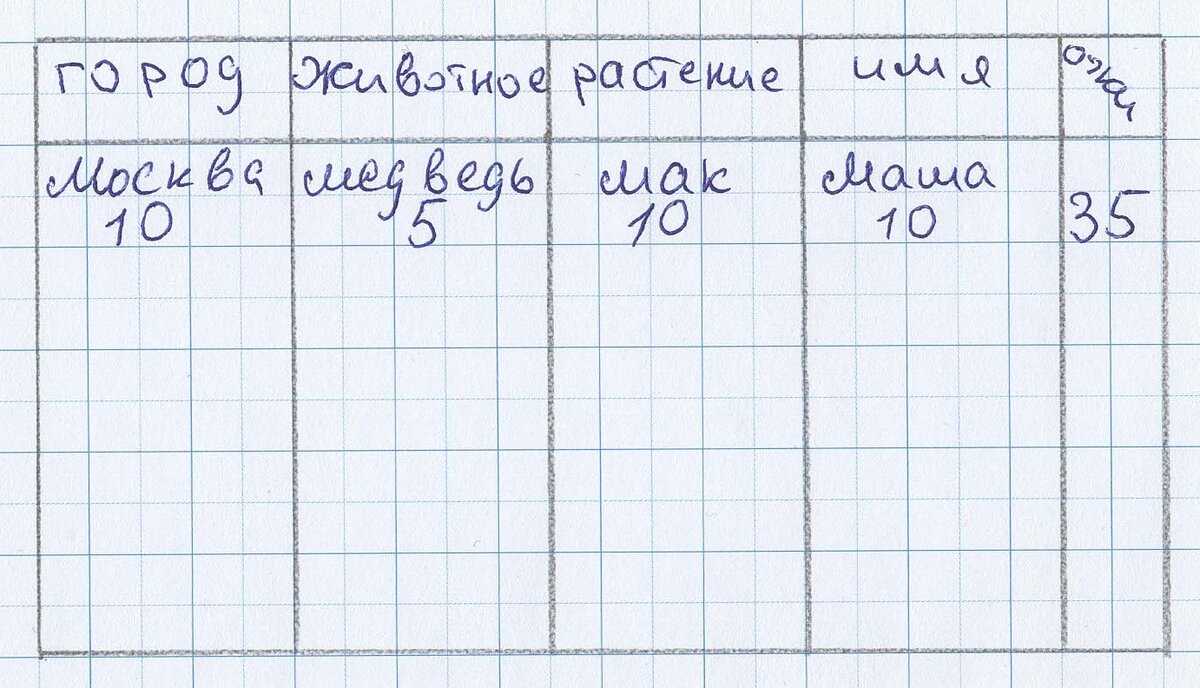 город животное растение имя очки
Москва медведь мак Маша
10 5 10 10 35